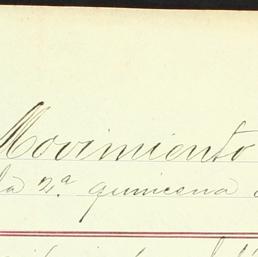 Movimiento
la 2ª quincena